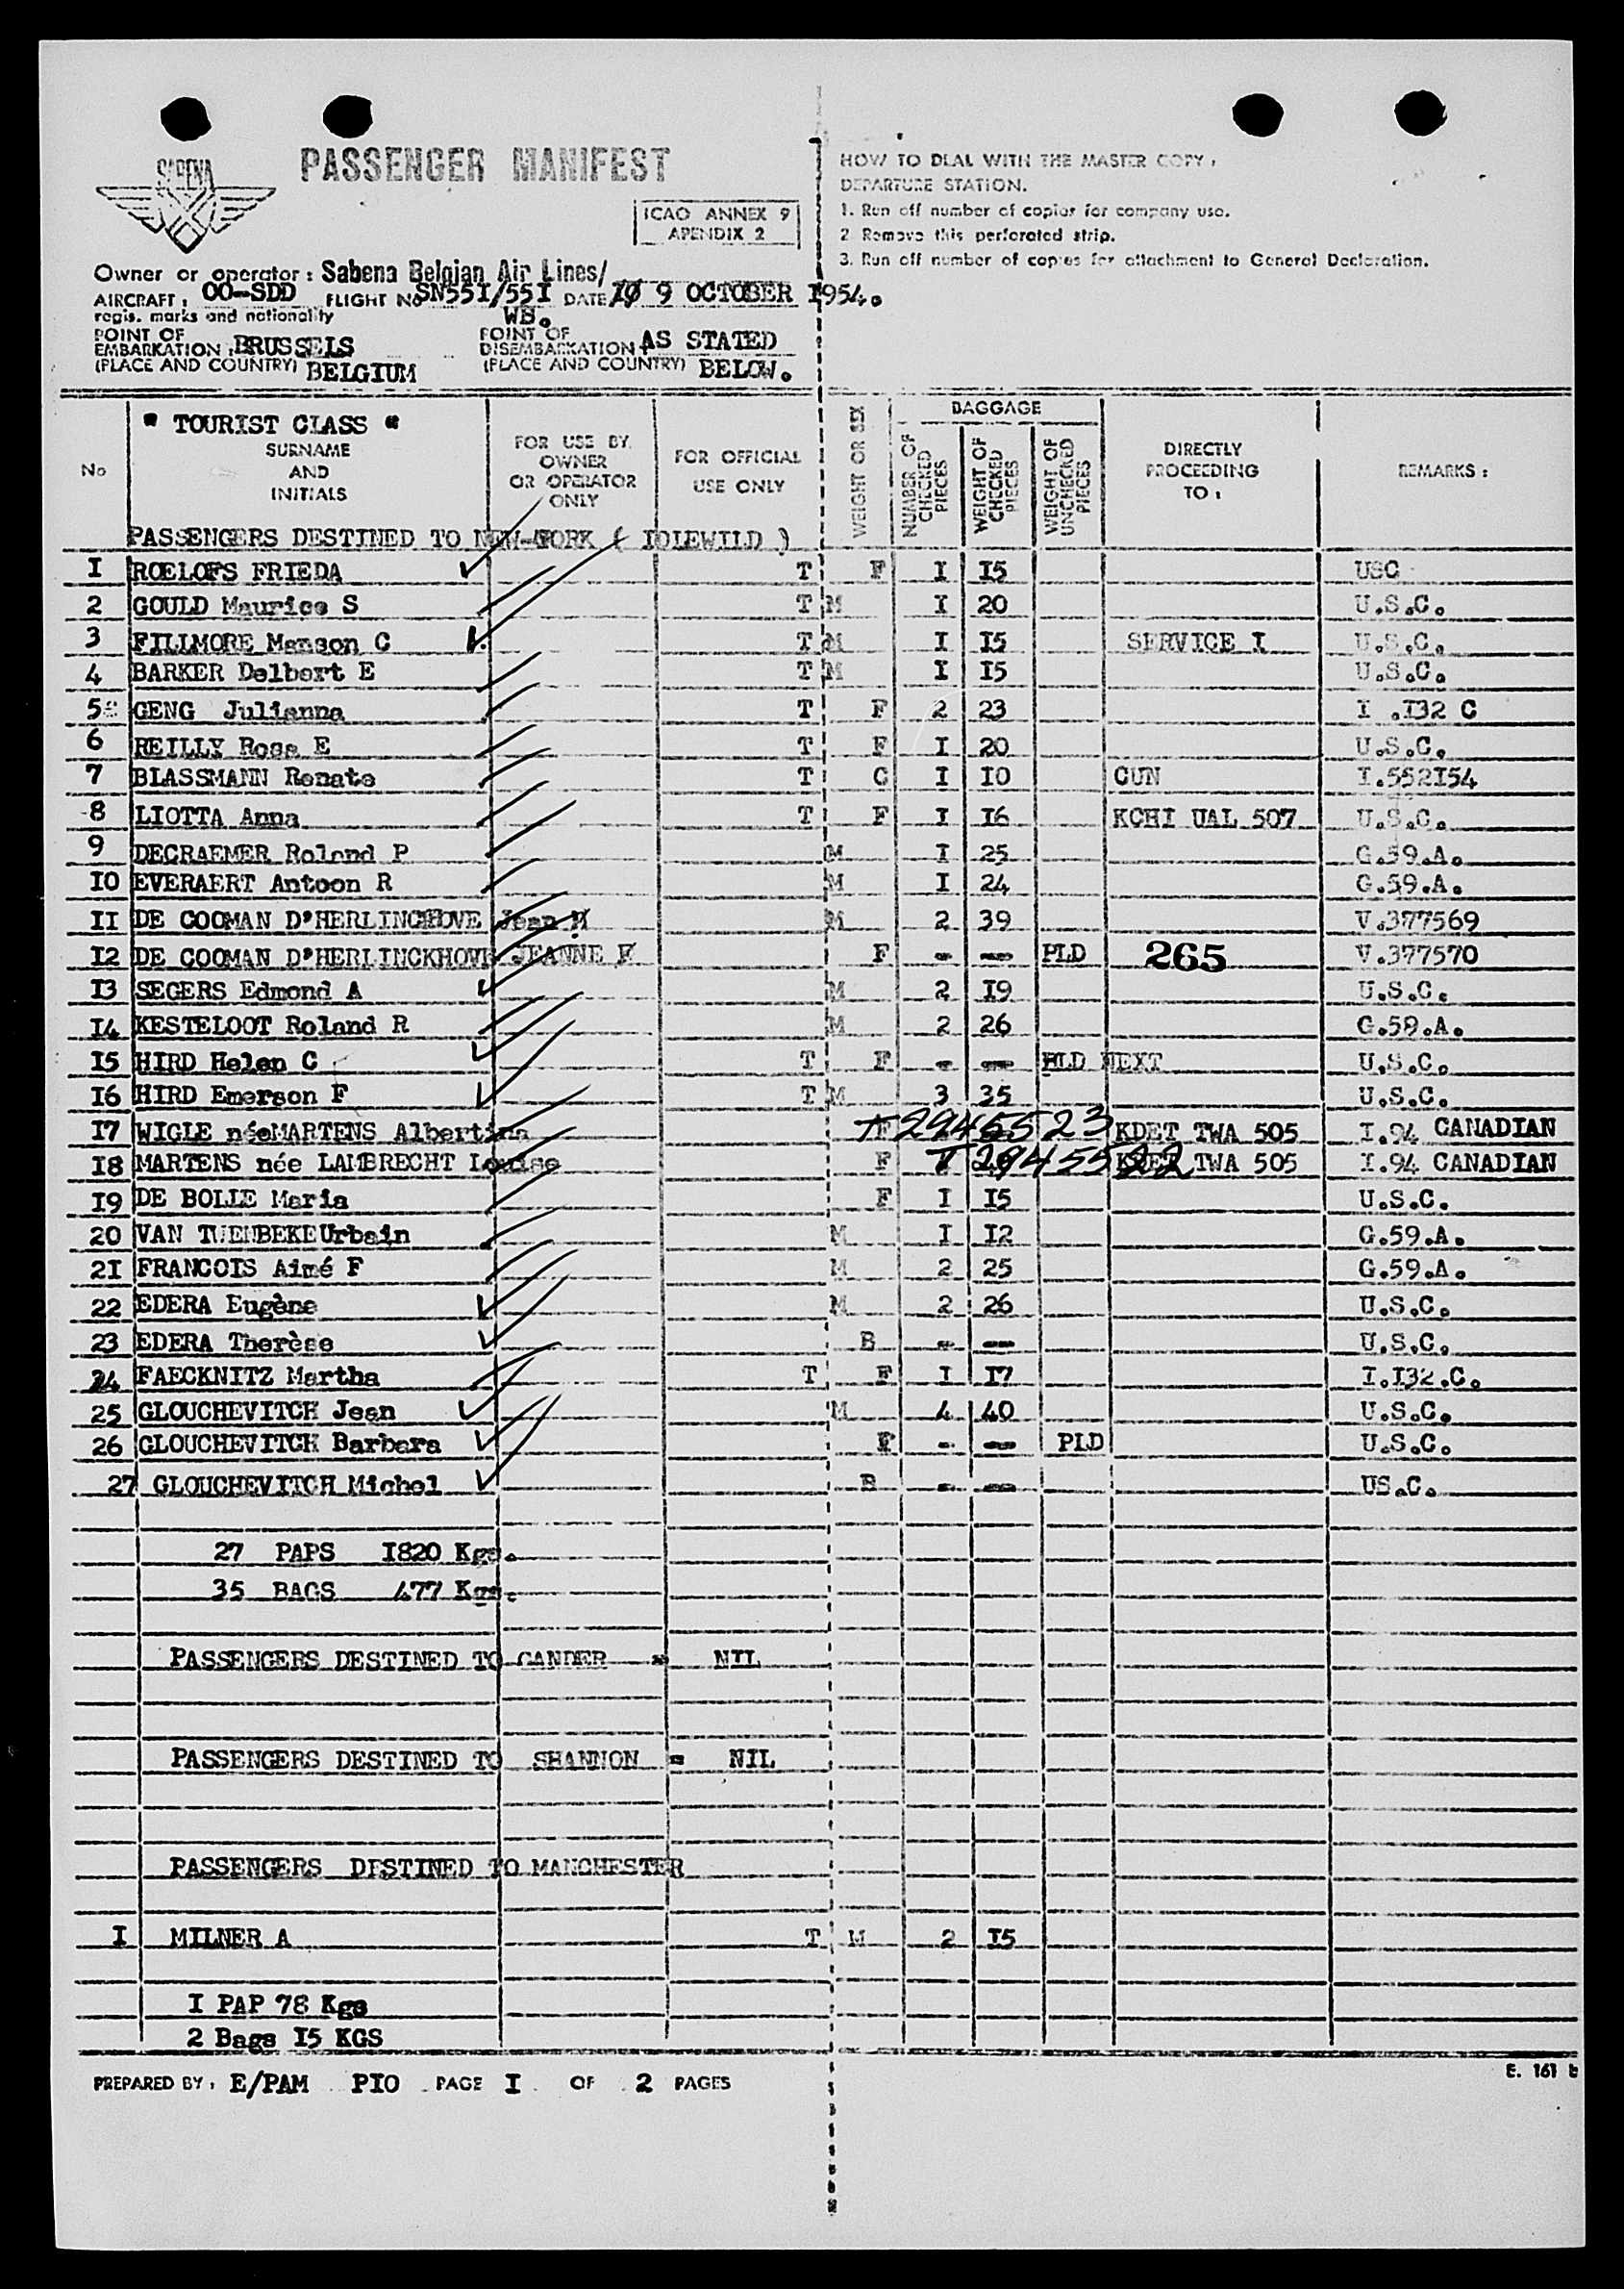 SABENA
PASSENGER MANIFEST
ICAO ANNEX 9
APENDIX 2
HOW TO DEAL WITH THE MASTER COPY :
DEPARTURE STATION.
1. Run off number of copies for company use.
2 Remove this perforated strip.
3. Run off number of copies for attachment to General Declaration.
Owner or operator : Sabena Belgian Air Lines/
AIRCRAFT : OO-SDD FLIGHT No SN55I/55I DATE 9 OCTOBER I954.
regis. marks and nationality WB.
POINT OF EMBARKATION : BRUSSELS
(PLACE AND COUNTRY) BELGIUM
POINT OF DISEMBARKATION : AS STATED
(PLACE AND COUNTRY) BELOW.
No
" TOURIST CLASS "
SURNAME AND INITIALS
FOR USE BY OWNER OR OPERATOR ONLY
FOR OFFICIAL USE ONLY
WEIGHT OR SEX
BAGGAGE
NUMBER OF CHECKED PIECES
WEIGHT OF CHECKED PIECES
WEIGHT OF UNCHECKED PIECES
DIRECTLY PROCEEDING TO :
REMARKS :
PASSENGERS DESTINED TO NEW-YORK ( IDLEWILD )
I ROELOFS FRIEDA T F I I5 USC
2 GOULD Maurice S T M I 20 U.S.C.
3 FILLMORE Manson C T M I I5 SERVICE I U.S.C.
4 BARKER Delbert E T M I I5 U.S.C.
5 GENG Julianna T F 2 23 I .I32 C
6 REILLY Rose E T F I 20 U.S.C.
7 BLASSMANN Renate T C I I0 CUN I.552I54
8 LIOTTA Anna T F I I6 KCHI UAL 507 U.S.C.
9 DECRAEMER Roland P M I 25 G.59.A.
I0 EVERAERT Antoon R M I 24 G.59.A.
II DE COOMAN D'HERLINCKHOVE Jean M M 2 39 V.377569
I2 DE COOMAN D'HERLINCKHOVE JEANNE F F - -- PLD 265 V.377570
I3 SEGERS Edmond A M 2 I9 U.S.C.
I4 KESTELOOT Roland R M 2 26 G.59.A.
I5 HIRD Helen C T F - -- PLD NEXT U.S.C.
I6 HIRD Emerson F T M 3 35 U.S.C.
I7 WIGLE néeMARTENS Albertina F T2945523 KDET TWA 505 I.94 CANADIAN
I8 MARTENS née LAMBRECHT Louise F T2945522 KDET TWA 505 I.94 CANADIAN
I9 DE BOLLE Maria F I I5 U.S.C.
20 VAN TWENBEKE Urbain M I I2 G.59.A.
2I FRANCOIS Aimé F M 2 25 G.59.A.
22 EDERA Eugène M 2 26 U.S.C.
23 EDERA Therèse B - -- U.S.C.
24 FAECKNITZ Martha T F I I7 I.I32.C.
25 GLOUCHEVITCH Jean M 4 40 U.S.C.
26 GLOUCHEVITCH Barbara F - -- PLD U.S.C.
27 GLOUCHEVITCH Michel B - -- US.C.
27 PAPS I820 Kgs.
35 BAGS 477 Kgs.
PASSENGERS DESTINED TO GANDER = NIL
PASSENGERS DESTINED TO SHANNON = NIL
PASSENGERS DESTINED TO MANCHESTER
I MILNER A T M 2 I5
I PAP 78 Kgs
2 Bags I5 KGS
E. 161 b
PREPARED BY : E/PAM PIO PAGE I OF 2 PAGES